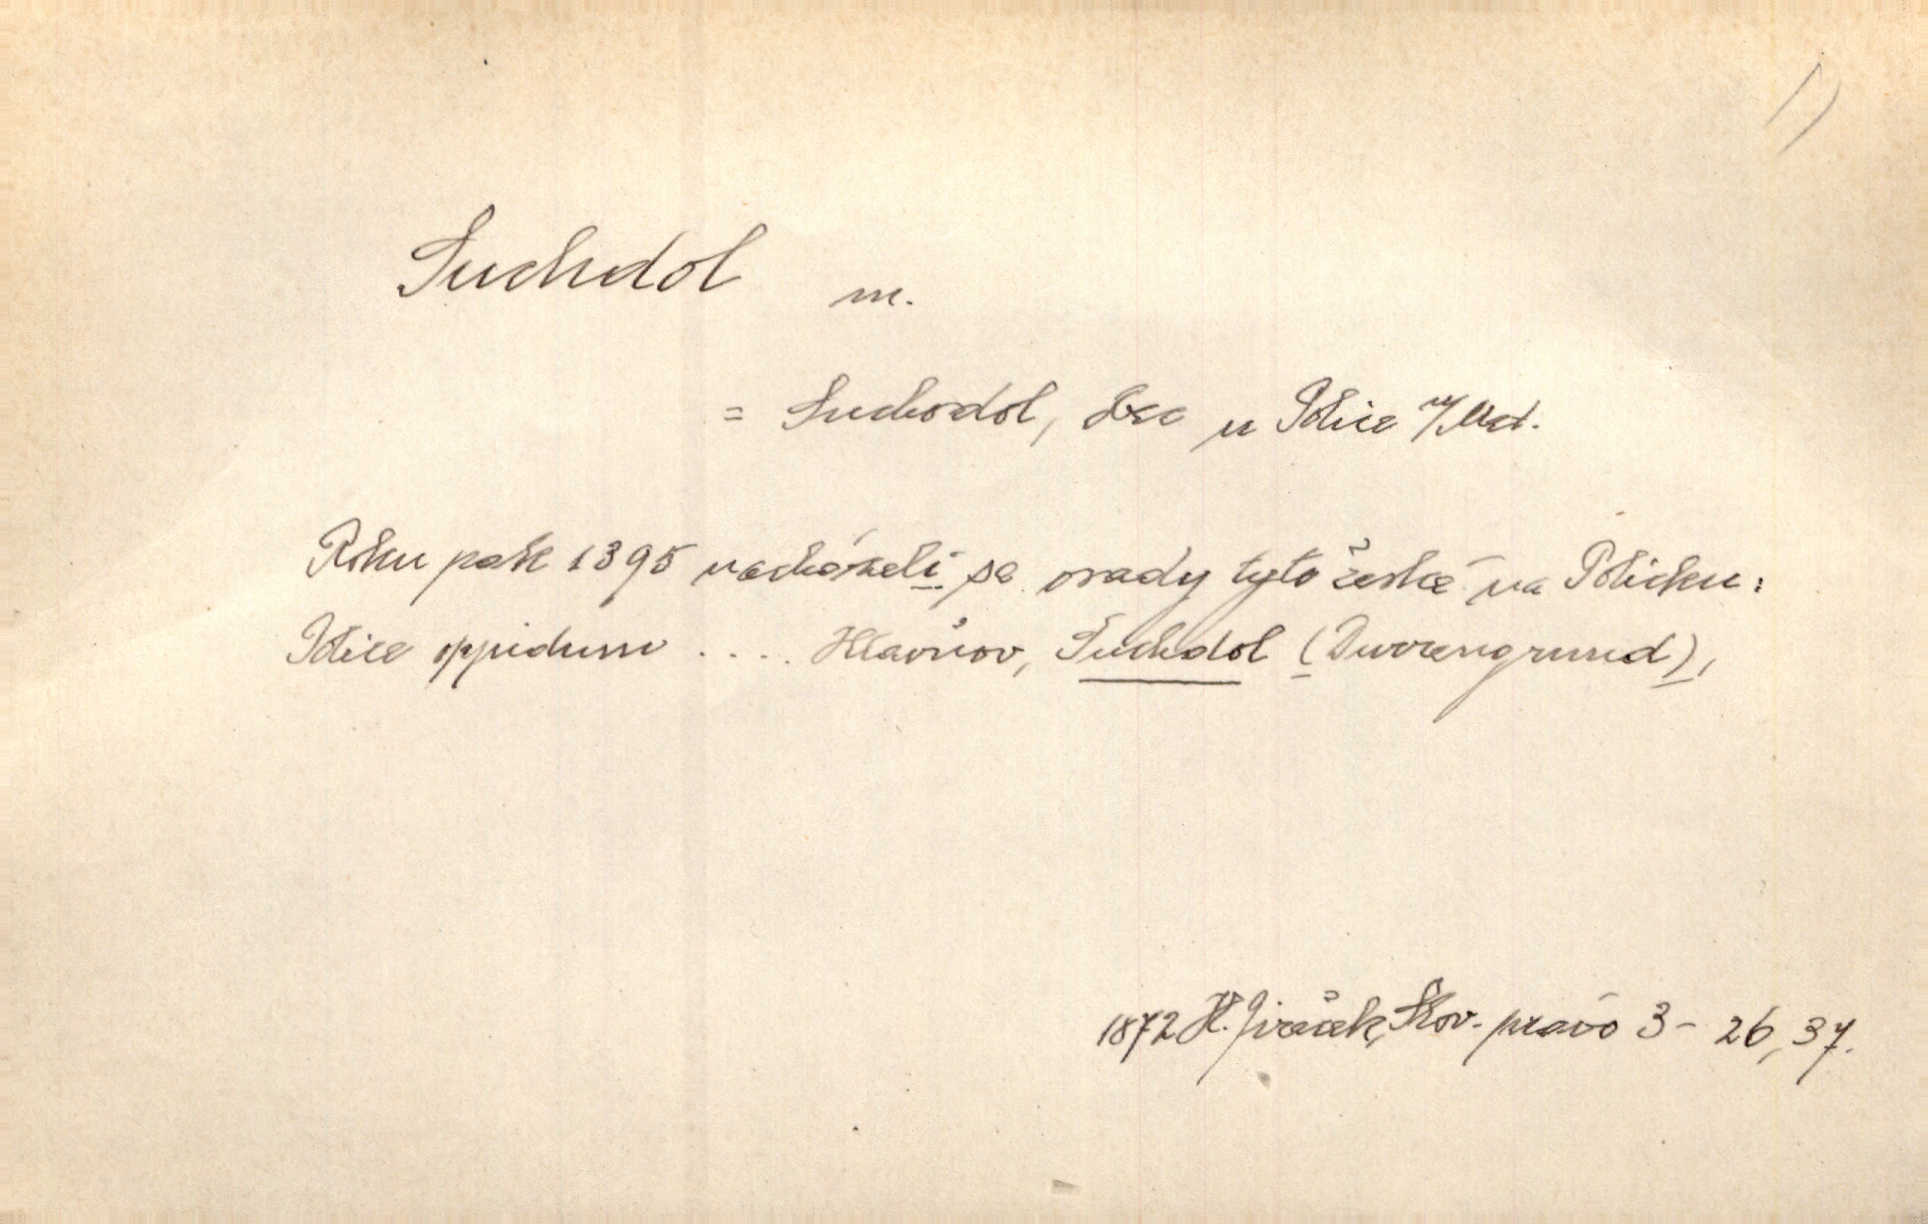 1)
Suchdol m.
= Suchodol, obec u Police n/Met.
Roku pak 1395 nacházeli se osady tyto české na Policku:
Police oppidum .... Hlavňov, Suchdol (Durrengrund),
1872 H. Jireček, Slov. právo 3 - 26, 37.